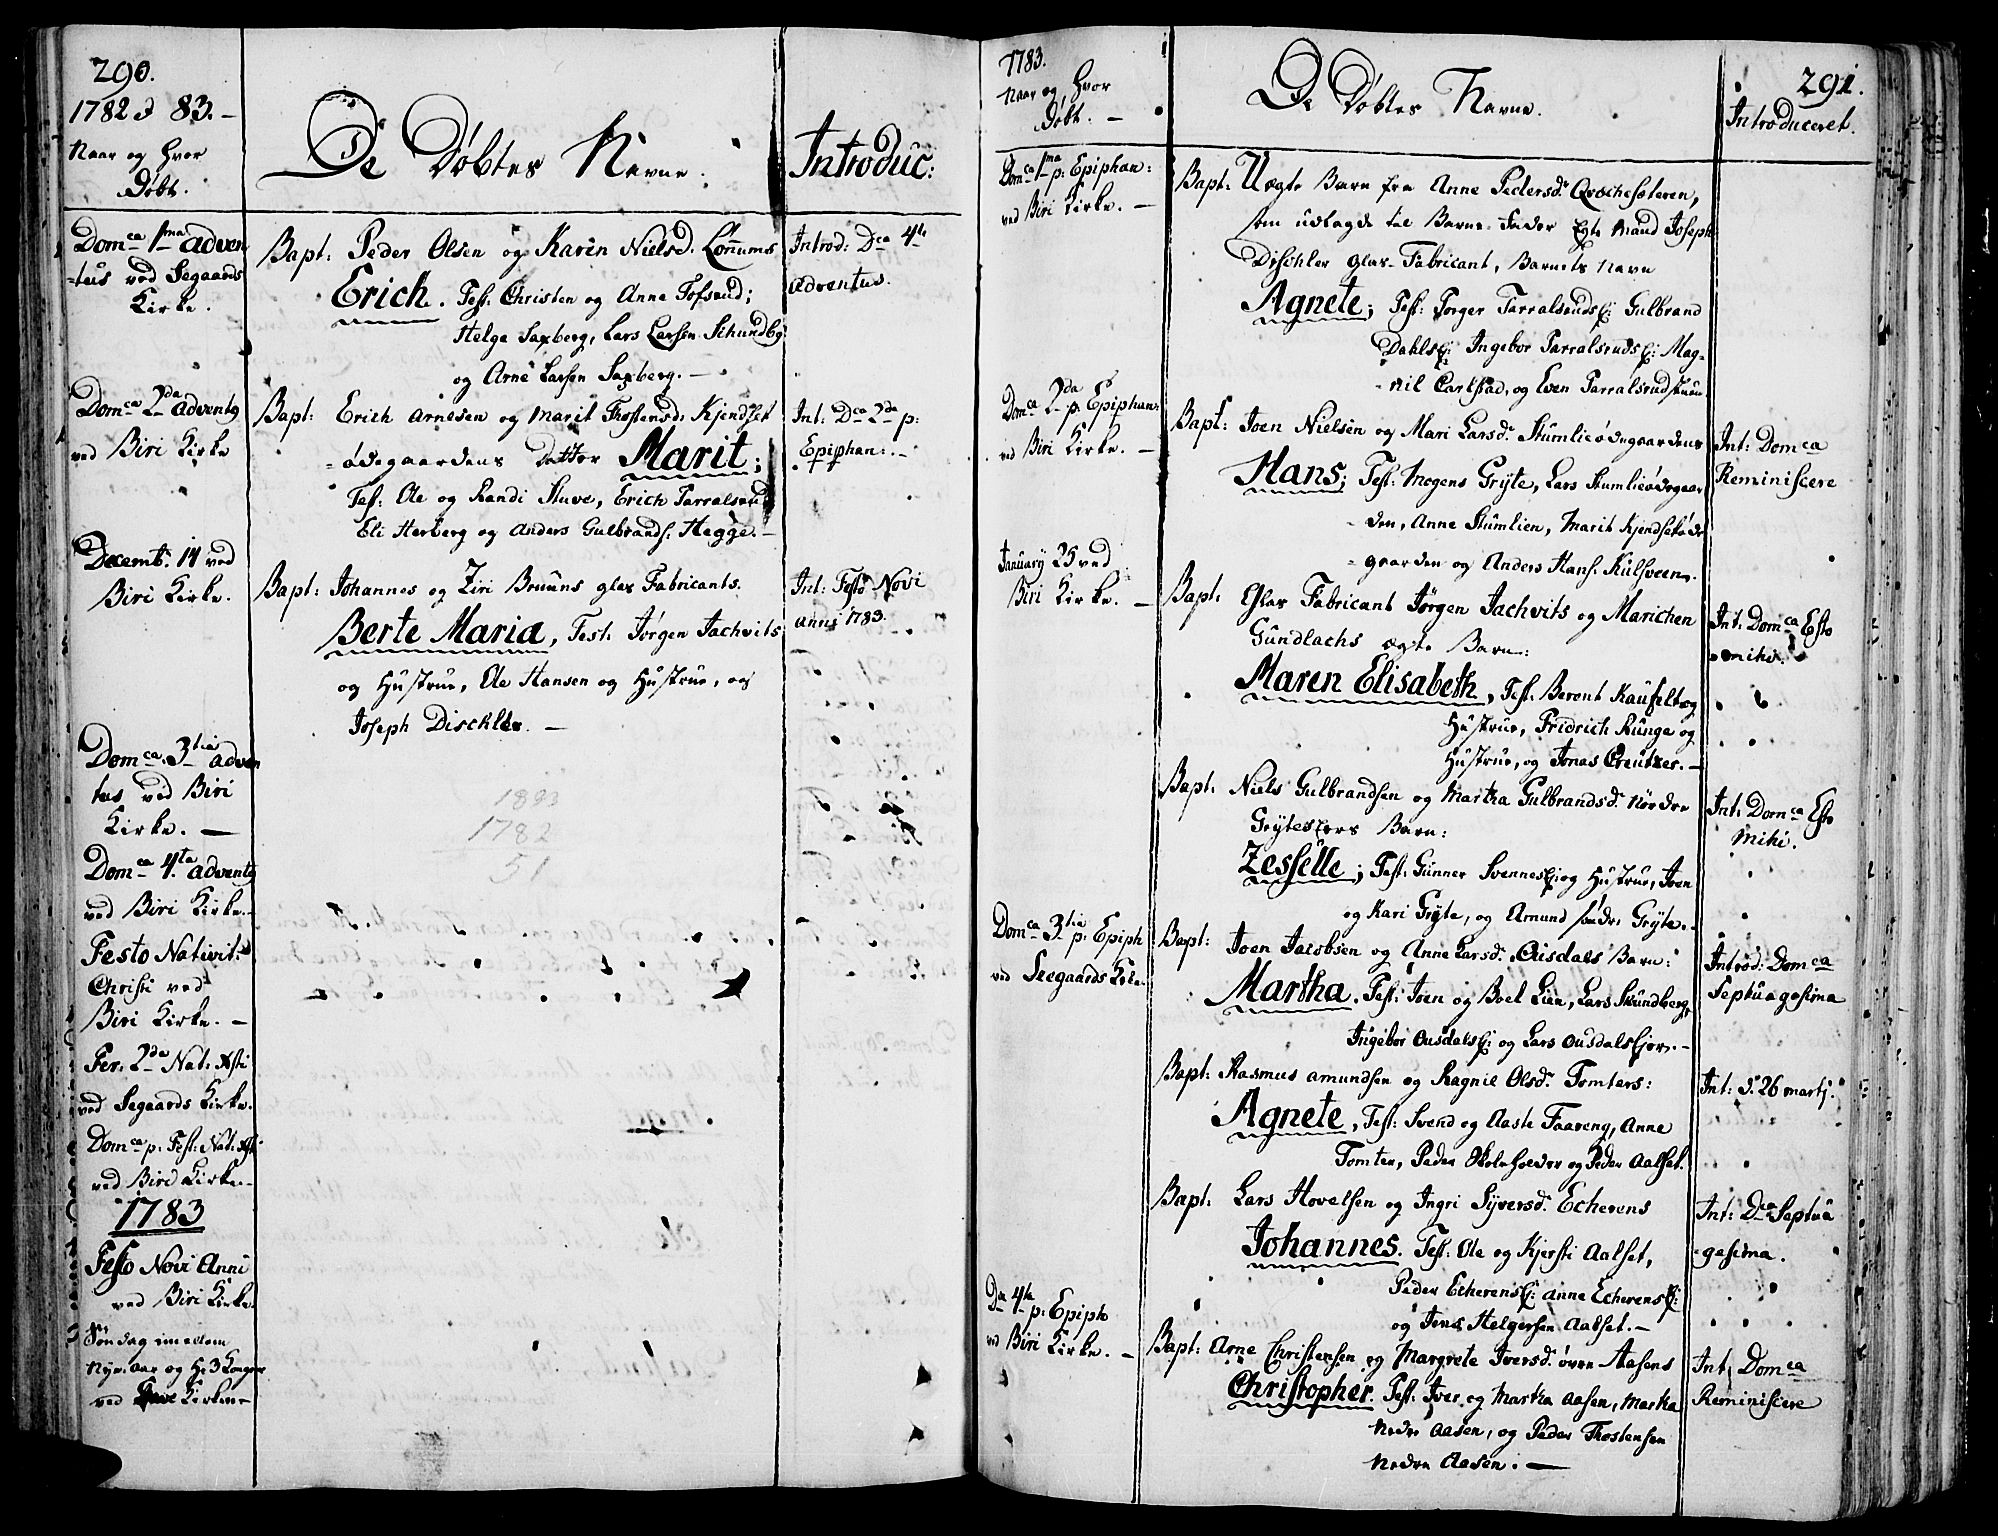 290.
1782 & 83. -
Naar og hvor
Døbt.
De Døbtes Navne.
Introduc:
Dom: ca 1 ma Adven
-tus ved Segaards
Kirke.
Bapt: Peder Olsen og Karin Nielsd. Lonnums
Erich. Test: Christen og Anne Tofsrud;
Helge Saxberg, Lars Larsen Schundby
og Arne Larsen Saxberg. -
Introd: Dca 4te
Adventus.
Dom: ca 2 da Advents
ved Biri Kirke
Bapt: Erich Arnesen og Marit Thostensd: Kjendset
-ødegaardens Datter Marit;
Test: Ole og Randi Stuve, Erich Tarralsrud
Eli Herberg og Anders Gulbrands: Hegge. -
Int: Dca 2da p:
Epiphan: -
Decemb: 14 ved
Biri Kirke.
Bapt: Johannes og Ziri Bruuns glas Fabricants.
Berte Maria, Test: Jørgen Jachvits
og Hustrue, Ole Hansen og Hustrue, og
Joseph Disckler. -
Int: Festo Novi
anni 1783.
Dom ca. 3 tia Adven
tus ved Biri
Kirke. -
1833
1782
51
Dom ca 4. ta Advents
ved Biri Kirke. -
Festo Nativit:
Christi ved
Biri Kirke. -
Fer: 2da Nat: Xsti
ved Segaards Kirke.
Dom ca p: Fest: Nat: Xsti
ved Biri Kirke. -
1783
Festo Novi Anni
ved Biri Kirke.
Søndag imellem
Nyn: Aar og H: 3 Konger
ved Kirken -
1783.
Naar og, hvor
Døbt. -
De Døbtes Navne.
291.
Introduceret.
Dom ca 1 ma p: Epiphan:
ved Biri Kirke. -
Bapt: Uægte Barn fra Anne Pedersd:
som udlagde til Barne-Fader Egte Mand Joseph
Dischler glas-Fabricant, Barnets Navn
Agnete; Test: Torger Tarralsruds Ej: Gulbrand
Dahls Ej: Ingebor Tarralsruds Ej: Mag-
-nil Carlstad, og Even Tarralsrud
Dom ca 2 da p: Epiphan:
ved Biri Kirke. -
Bapt: Joen Nielsen og Mari Larsd: Skumlieødegaardens
Hans; Test: Mogens Gryte, Lars Skumlieødegaar
-den, Anne Skumlien, Marit Kjendsetøde
-gaarden og Anders Hans: Kulsveen.
Int: Dom ca
Reminiscere
January 25 ved
Biri Kirke. -
Bapt: Glas Fabricant Jørgen Jachvits og Marichen
Gundlachs ægte Barn:
Maren Elisabeth, Test: Berent Kaufelt og
Hustrue, Fridrich Runge og
Hustrue, og Jonas Creutzer. -
Int: Dom ca Esto
mihi.
Bapt: Niels Gulbrandsen og Martha Gulbrandsd: Nordre
Grytes Barn:
Zesselle; Test: Gunner Svennes Ej: og Hustrue, Joen
og Kari Gryte, og Amund søndr: Gryte.
Int: Dom ca Esto
Mihi.
Dom ca 3 tia p: Epiph
ved Seegaards Kirke.
Bapt: Joen Jacobsen og Anne Larsd: Ousdals Barn:
Martha. Test: Joen og Boel Lien, Lars Skundberg,
Ingebor Ousdals Ej: og Lars Ousdals Ejer. -
Introd: Dom ca
Septuagesima
Bapt: Rasmus Amundsen og Ragnil Olsd: Tomters:
Agnete, Test: Svend og Aaste Faareng, Anne
Tomter, Peder Skoleholder og Peder Aalset.
Int: d: 26 martj.
Bapt: Lars Hovelsen og Ingri Syversd. Echerens
Johannes. Test: Ole og Kjersti Aalset,
Peder Echerens Ej: Anne Echerens Ej:
og Jens Helgersen Aalset. -
Int: Dca Septua
-gesima.
Da 4te p: Epiph
ved Biri Kirke. -
Bapt: Arne Christensen og Margrete Iversd: øvre Aasens
Christopher. Test: Iver og Martha Aasen, Martha
Nedre Aasen, og Peder Thostensen
Nedre Aasen. -
Int: Dom ca
Reminiscere